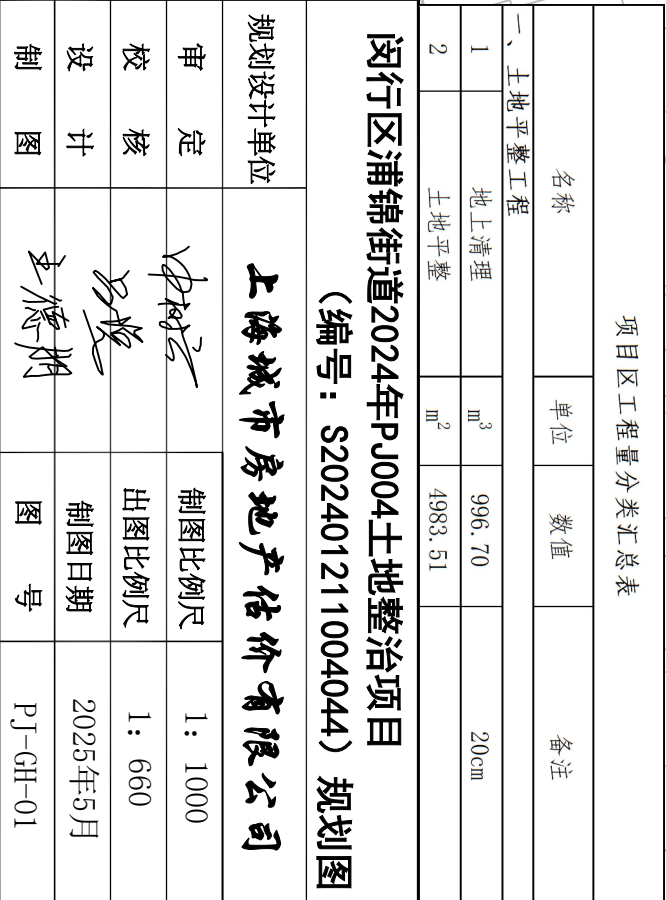 项目区工程量分类汇总表
名称 单位 数值 备注
一、土地平整工程
1 地上清理 m³ 996.70 20cm
2 土地平整 m² 4983.51
闵行区浦锦街道2024年PJ004土地整治项目
（编号：S202401211004044）规划图
规划设计单位 上海城市房地产估价有限公司
审 定 制图比例尺 1：1000
校 核 出图比例尺 1：660
设 计 制图日期 2025年5月
制 图 图 号 PJ-GH-01